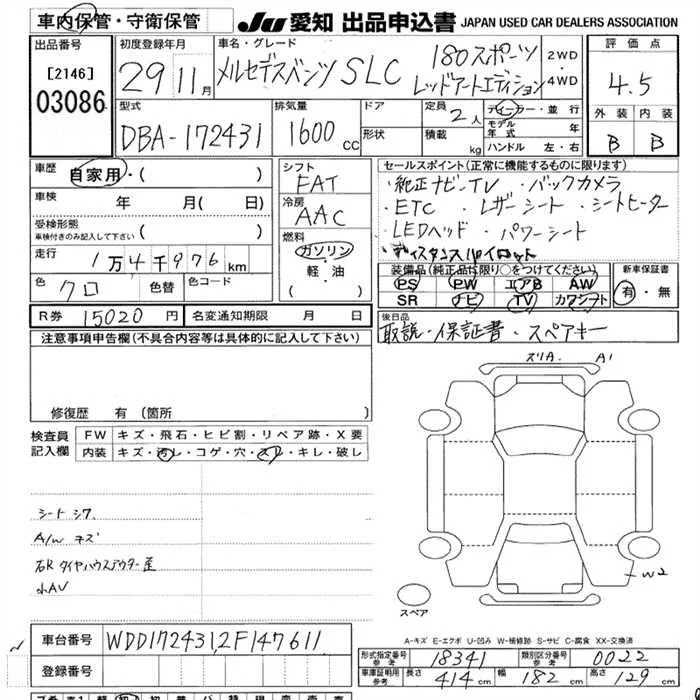 車内保管・守衛保管 JU 愛知 出品申込書 JAPAN USED CAR DEALERS ASSOCIATION
出品番号 初度登録年月 車名・グレード 評価点
[2146] 29 11月 メルセデスベンツ SLC 180スポーツ 2WD
03086 レッドアートエディション 4WD 4.5
型式 排気量 ドア 定員 2人 ディーラー・並行 外装 内装
DBA-172431 1600cc 形状 積載 kg モデル年式 年 B B
ハンドル 左・右
車歴 自家用・( ) シフト セールスポイント(正常に機能するものに限ります)
FAT ・純正ナビ・TV ・バックカメラ
車検 年 月( 日) 冷房 ・ETC ・レザーシート ・シートヒーター
受検形態 AAC ・LEDヘッド ・パワーシート
車検付きのみ記入して下さい ( ) 燃料 ・ディスタンスパイロット
走行 1万4千976km ガソリン 装備品(純正品に限り○をつけてください) 新車保証書
色 クロ 色替 色コード 軽・油 PS PW エアB AW 有・無
( ・ ) SR ナビ TV カワシート
R券 15020円 名変通知期限 月 日 後日品
取説・保証書・スペアキー
注意事項申告欄(不具合内容等は具体的に記入して下さい)
スリA. A1
修復歴 有(箇所 )
検査員 FW キズ・飛石・ヒビ割・リペア跡・X要
記入欄 内装 キズ・汚レ・コゲ・穴・スレ・キレ・破レ
シートシワ
A/W キズ
右Rタイヤハウスアウター歪
小AV
W2
スペア
A-キズ E-エクボ U-凹み W-補修跡 S-サビ C-腐食 XX-交換済
車台番号 WDD1724312F147611
形式指定番号 参考 18341 類別区分番号 参考 0022
登録番号 車庫証明用 参考 長さ 414cm 幅 182cm 高さ 129cm